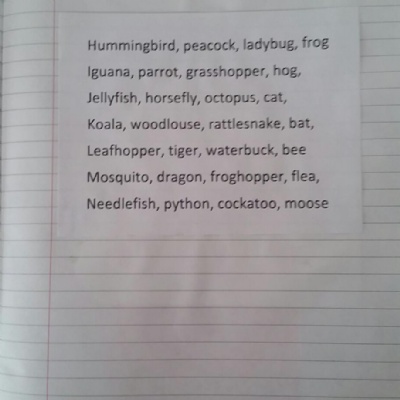 Hummingbird, peacock, ladybug, frog
Iguana, parrot, grasshopper, hog,
Jellyfish, horsefly, octopus, cat,
Koala, woodlouse, rattlesnake, bat,
Leafhopper, tiger, waterbuck, bee
Mosquito, dragon, froghopper, flea,
Needlefish, python, cockatoo, moose